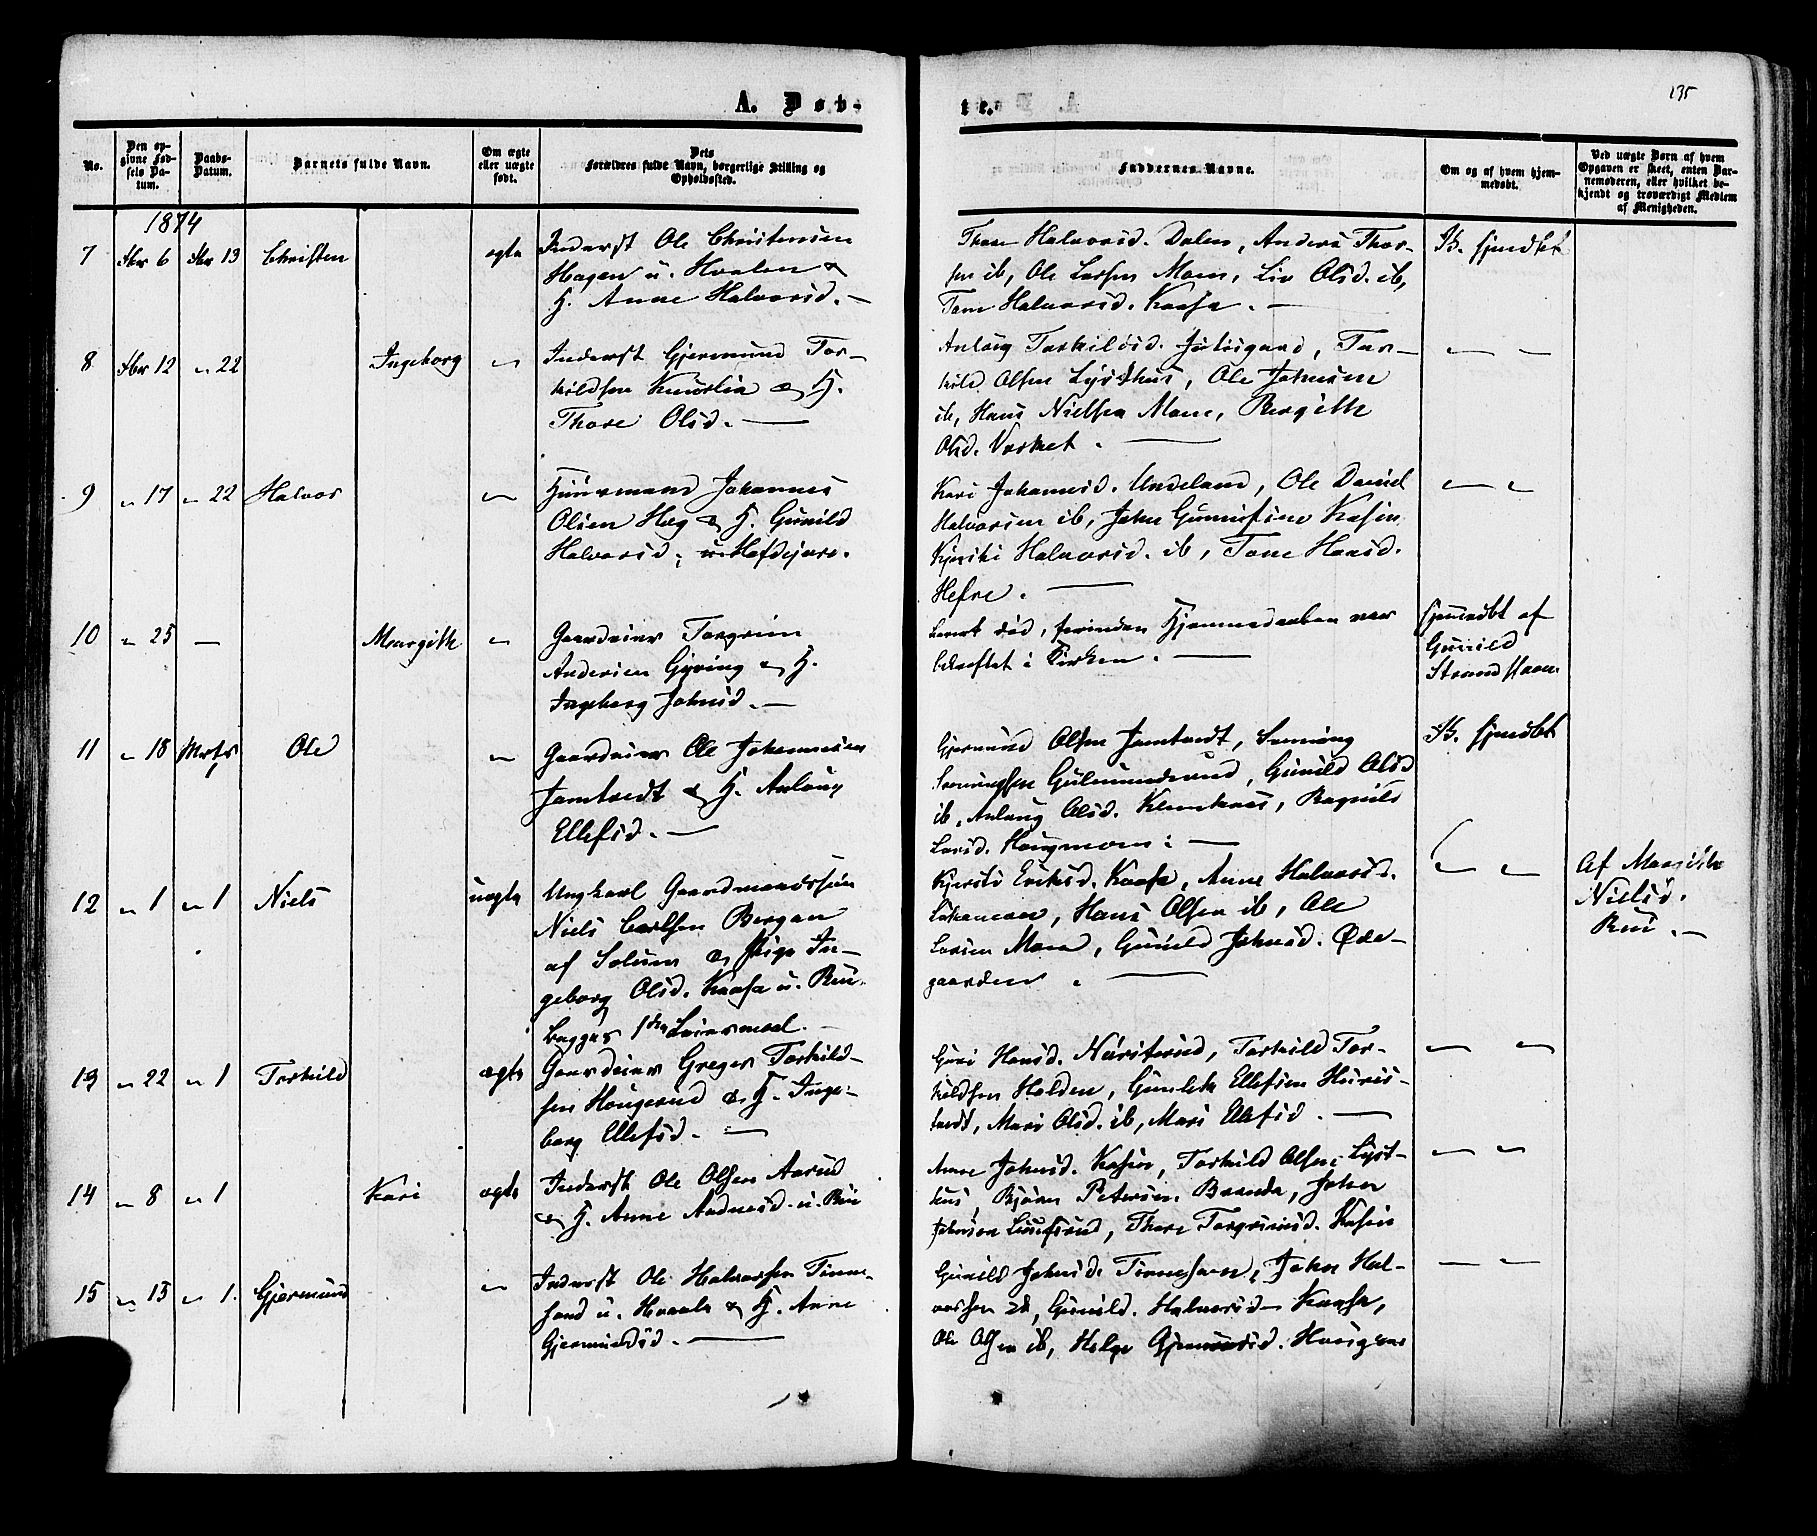 135
A. Døb-
te.
No.
Den op-
givne Fød-
sels Da-
tum.
Daabs-
Datum.
Barnets fulde Navn.
Om ægte
eller uægte
født.
Dets
Forældres fulde Navn, borgerlige Stilling og
Opholdssted.
Faddernes Navne.
Om og af hvem hjem-
medøbt.
Ved uægte Børn af hvem
Opgaven er skeet, enten Bar-
nemoderen, eller hvilket be-
kjendt og troværdigt Medlem
af Menigheden.
1874
7 Fbr 6 Fbr 13 Christen ægte Inderst Ole Christensen
Hagen u. Hvalen &
H. Anne Halvorsd. —
Thone Halvorsd. Dalen, Anders Thor-
sen ib, Ole Larsen Moen, Liv Olsd. ib,
Tone Halvorsd. Kaasa. —
Kb. hjmdbt
8 Fbr 12 " 22 Ingeborg " Inderst Gjermund Tor-
kildsen Knurlia & H.
Thore Olsd. —
Anlaug Torkilsd. , Tor-
kild Olsen Lysthus, Ole Johnsen
ib, Hans Nielsen Moen, Bergith
Olsd. Vasket. —
" "
9 " 17 " 22 Halvor " Huusmand Johannes
Olsen Hæg & H. Gunild
Halvorsd.
Kari Johannesd. Undeland, Ole Daniel
Halvorsen ib, John Gunnufsen Kasin
Kjersti Halvorsd. ib, Tone Hansd.
Hefre. —
" "
10 " 25 — Margith " Gaardeier Torgrim
Andersen Gyving & H.
Ingeborg Johnsd. —
Barnet død, forinden Hjemmedaaben var
bekræftet i Kirken. —
hjmmdbt af
Gunild
Strand
11 " 18 Mrts 1 Ole " Gaardeier Ole Johannesen
Jamtvedt & H. Anlaug
Ellefsd. —
Gjermund Olsen Jamtvedt, Sveinung
Sveinungsen Gulmunderud, Gunild Olsd
ib, Anlaug Olsd. , Ragnild
Larsd. Haugmoen. —
Kb. hjmdbt
12 " 1 " 1 Niels uægte Ungkarl Gaardmandssøn
Niels Carlsen Bergan
af Solum & Pige In-
geborg Olsd. Kaasa u. Rui.
begges 1ste Leiermaal. —
Kjersti Eriksd. Kaasa, Anne Halvorsd.
, Hans Olsen ib, Ole
Larsen Moen, Gunild Johnsd. Øde-
gaarden. —
" "
Af Margith
Nielsd.
Rui. —
13 " 22 " 1 Torkild ægte Gaardeier Greger Torkild-
sen Haugerud & H. Inge-
borg Ellefsd. —
Guri Hansd. Narisrud, Torkild Tor-
kildsen Holden, Gunlek Ellefsen Huris-
tvedt, Mari Olsd. ib, Mari Ellefsd. —
" "
14 " 8 " 1 Kari ægte Inderst Ole Olsen Aarud
& H. Anne Andersd. u. Rui
Anne Johnsd. Kasin, Torkild Olsen Lyst-
hus, Bjørn Petersen Brenda, John
Johnsen , Thore Torgrimsd. Kasin
" "
15 " 13 " 1. Gjermund " Inderst Ole Halvorsen Tinne-
sand u. Hvaala & H. Anne
Gjermundsd. —
Gunild Johnsd. Tinnesand, John Hal-
vorsen , Gunild. Halvorsd. Kaasa,
Ole Olsen ib, Helge Gjermundsd.
" "